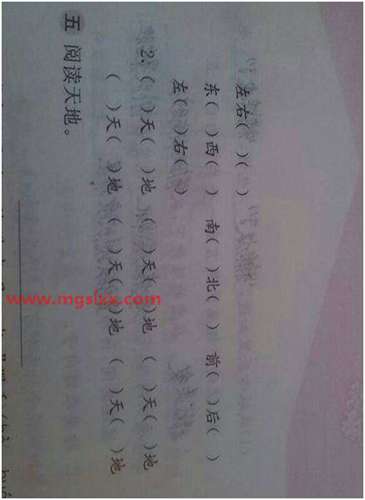 左右(　)(　)
东(　)西(　)　南(　)北(　)　前(　)后(　)
左(　)右(　)
2.(　)天(　)地　(　)天(　)地　(　)天(　)地
(　)天(　)地　(　)天(　)地　(　)天(　)地
五 阅读天地。
www.mgslxx.com